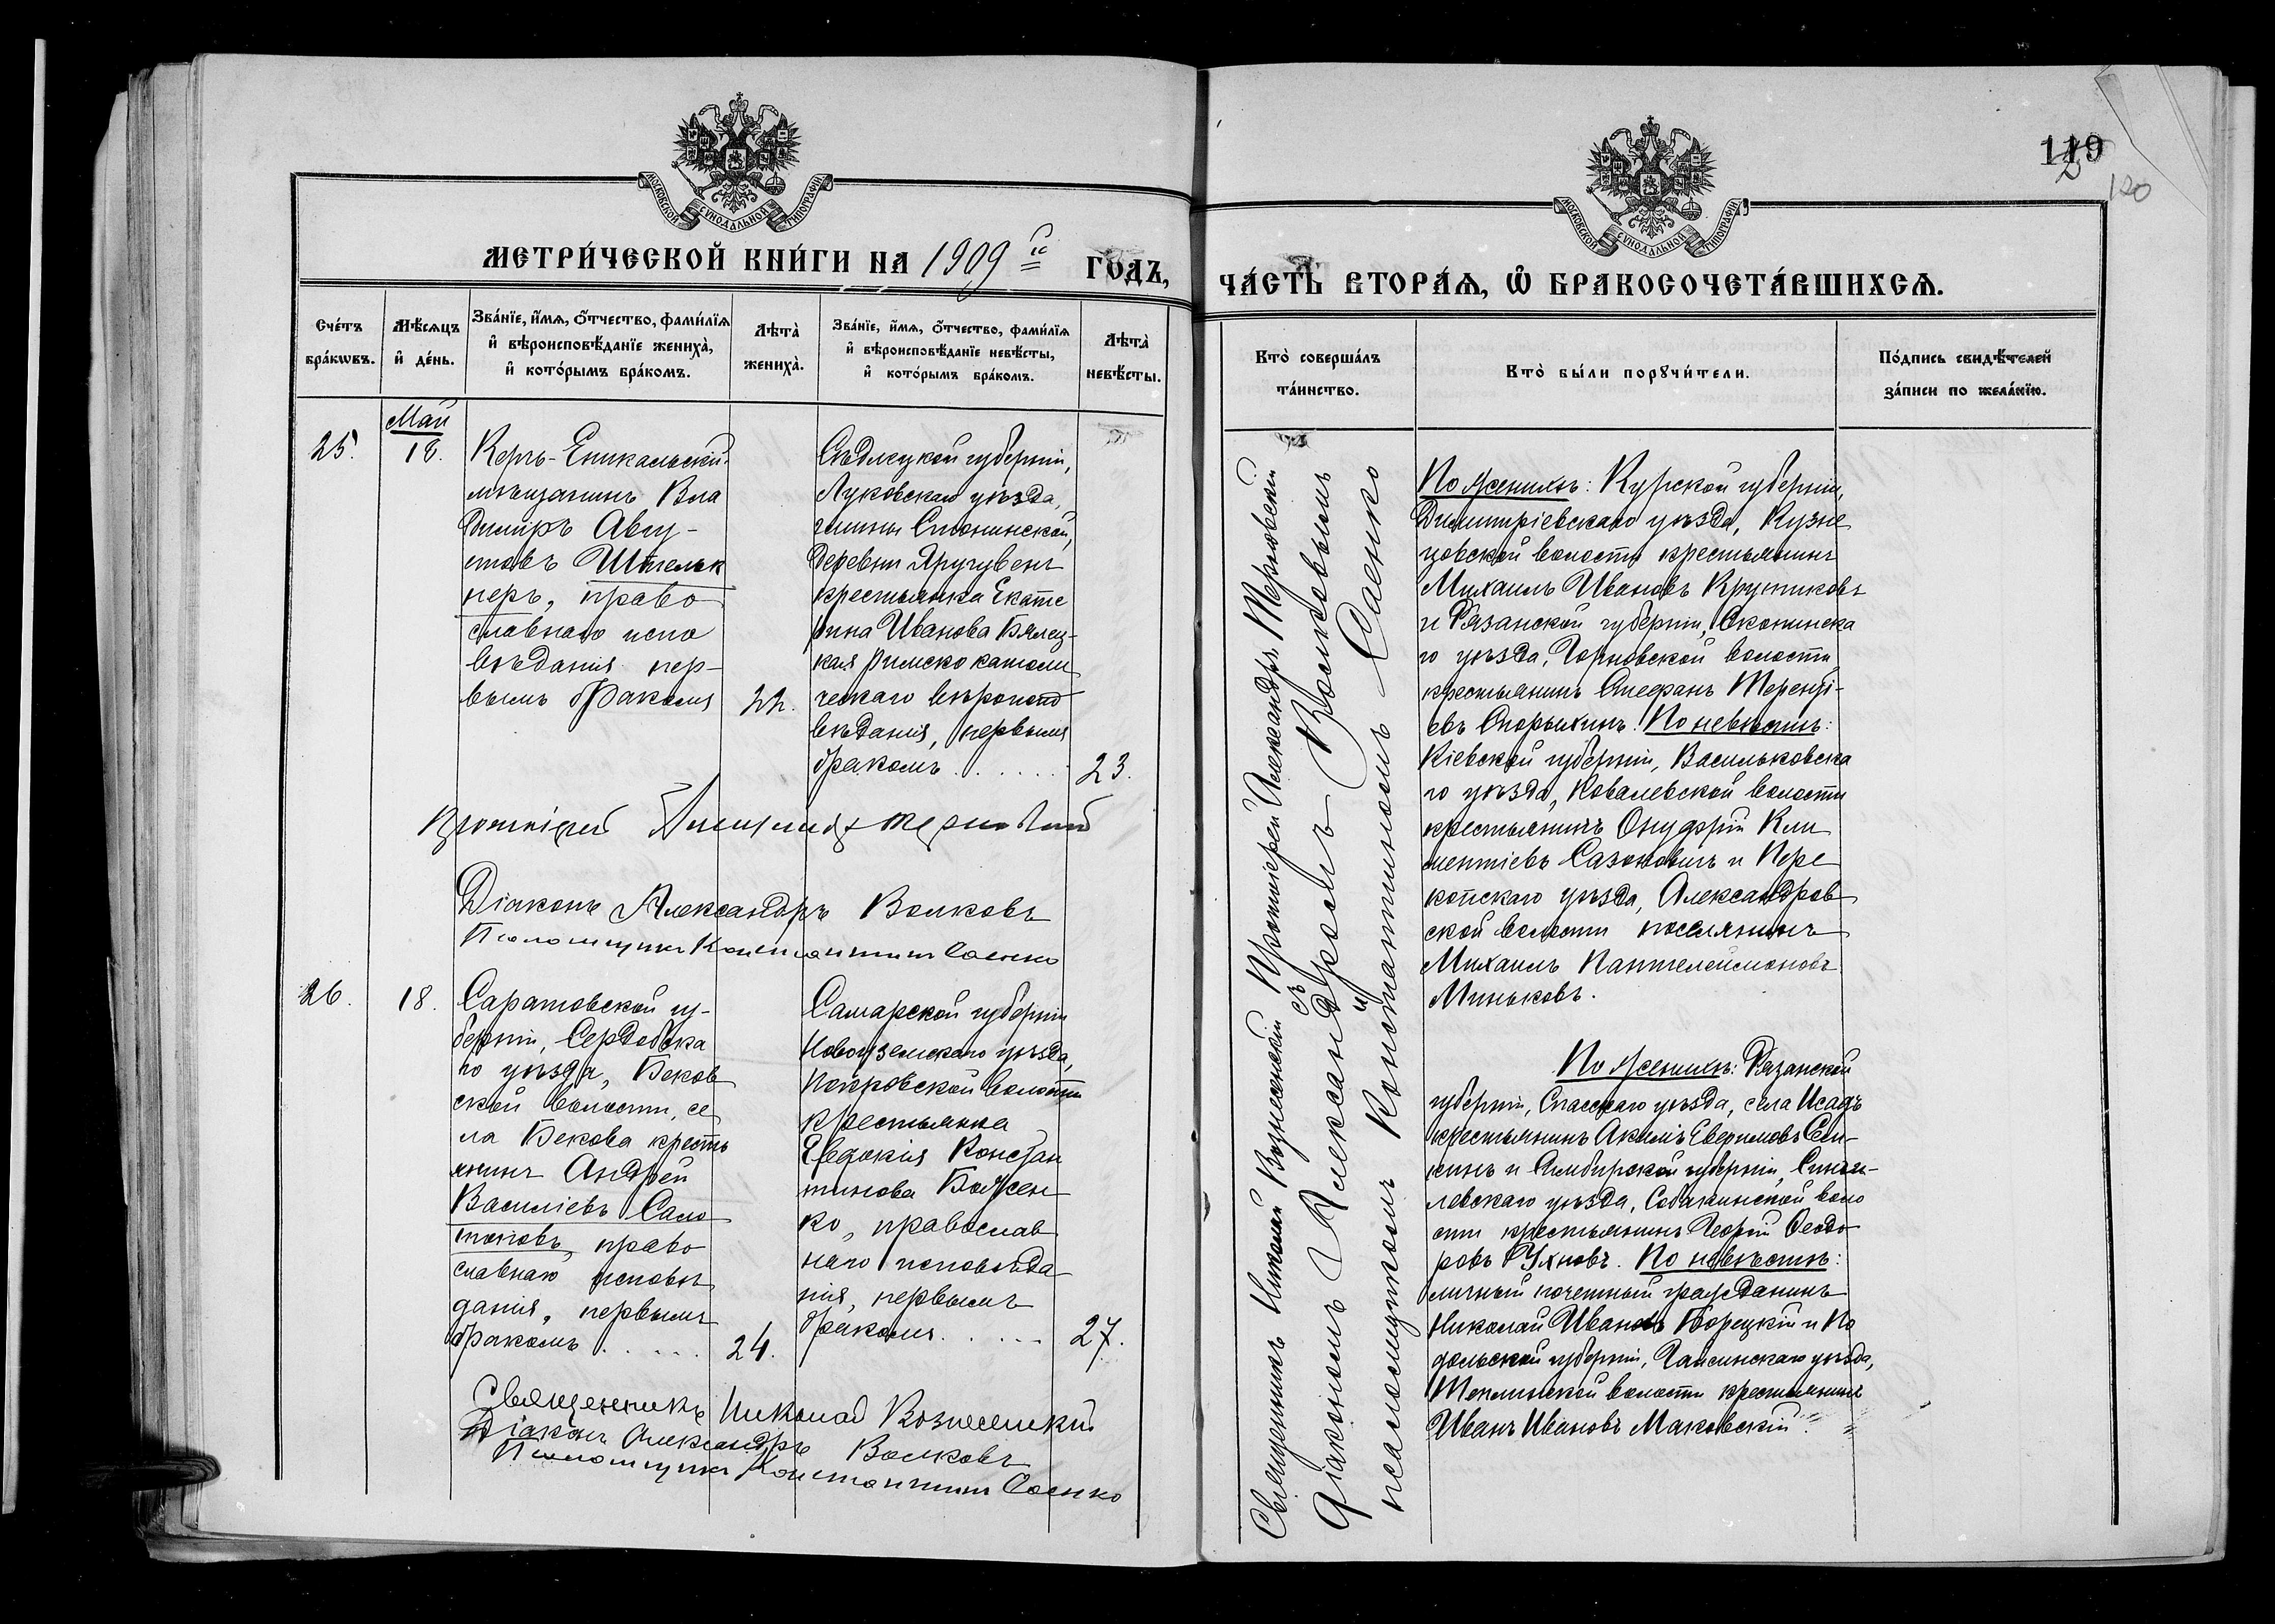 МОСКОВСКОЙ СѴНОДАЛЬНОЙ ТИПОГРАФІИ
МЕТРИ́ЧЕСКОЙ КНИ́ГИ НА 1909 й ГОДЪ,
Сче́тъ бра́кωвъ.
Мѣ́сяцъ и҆ де́нь.
Зва́нїе, и҆́мѧ, ѻ҆́тчество, фами́лїѧ и҆ вѣроисповѣ́данїе жениха̀, и҆ кото́рымъ бра́комъ.
Лѣ́та̀ жениха̀.
Зва́нїе, и҆́мѧ, ѻ҆́тчество, фами́лїѧ и҆ вѣроисповѣ́данїе невѣ́сты, и҆ кото́рымъ бра́комъ.
Лѣ́та̀ невѣ́сты.
25.
Май
18.
Керчь-Еникальскій
мѣщанинъ Вла
димиръ Авгу-
стовъ Штельк
неръ, право
славнаго испо
вѣданія пер-
вымъ бракомъ
22.
Сѣдлецкой губерніи,
Луковскаго уѣзда,
гмины
деревни
крестьянка Екате
рина Ивановa Бялец-
кая римско католи
ческаго вѣроиспо
вѣданія, первымъ
бракомъ . . . . . .
23.
Протоіерей Александръ Терновскій
Діаконъ Александръ Волковъ
Псаломщикъ Константинъ Саенко
26.
18.
Саратовской гу-
берніи, Сердобска
го уѣзда, Беков
ской волости, се
ла Бекова кресть
янинъ Андрей
Василіевъ Само
право
славнаго исповѣ
данія, первымъ
бракомъ . . . . .
24.
Самарской губерніи
Новоузенскаго уѣзда,
Покровской волости
крестьянка
Евдокія Констан
тинова Божен
ко, православ
наго исповѣда
нія, первымъ
бракомъ . . . . .
27.
Священникъ Николай Вознесенскій
Діаконъ Александръ Волковъ
Псаломщикъ Константинъ Саенко
119
2
120
МОСКОВСКОЙ СѴНОДАЛЬНОЙ ТИПОГРАФІИ
ЧА́СТЬ ВТОРА́Ѧ, Ѡ҆ БРАКОСОЧЕТА́ВШИХСѦ.
Кто̀ соверша́лъ та́инство.
Кто̀ бы́ли порꙋчи́тели.
По́дпись свидѣ́телей за́писи по жела́нїю.
Священникъ Николай Вознесенскій Протоіерей Александръ Терновскій
съ
діакономъ Александромъ Волковымъ
и
псаломщикомъ Константиномъ Саенко
По женихѣ: Курской губерніи,
Димитріевскаго уѣзда, Кузне
цовской волости крестьянинъ
Михаилъ Ивановъ Крупиковъ
и Рязанской губерніи, Скопинска
го уѣзда, Горновской волости
крестьянинъ Стефанъ Терентi-
евъ Спорыхинъ. По невѣстѣ:
Кіевской губерніи, Васильковска
го уѣзда, Ковалевской волости
крестьянинъ Онуфрій Кли
ментіевъ Сазоновичъ и Пере
копскаго уѣзда, Александров
ской волости поселянинъ
Михаилъ Пантелеимоновъ
Миньковъ.
По женихѣ: Рязанской
губерніи, Спасскаго уѣзда, села Исадъ
крестьянинъ Акимъ Сен-
кинъ и Симбирской губерніи, Сенги-
леевскаго уѣзда, Собакинской воло
сти крестьянинъ Георгій Ѳеодо
ровъ Ухновъ. По невѣстѣ:
личный почетный гражданинъ
Николай Ивановъ Борецкій и По
дольской губерніи, Гайсинскаго уѣзда,
Теплинской волости крестьянинъ
Иванъ Ивановъ Маковскій.